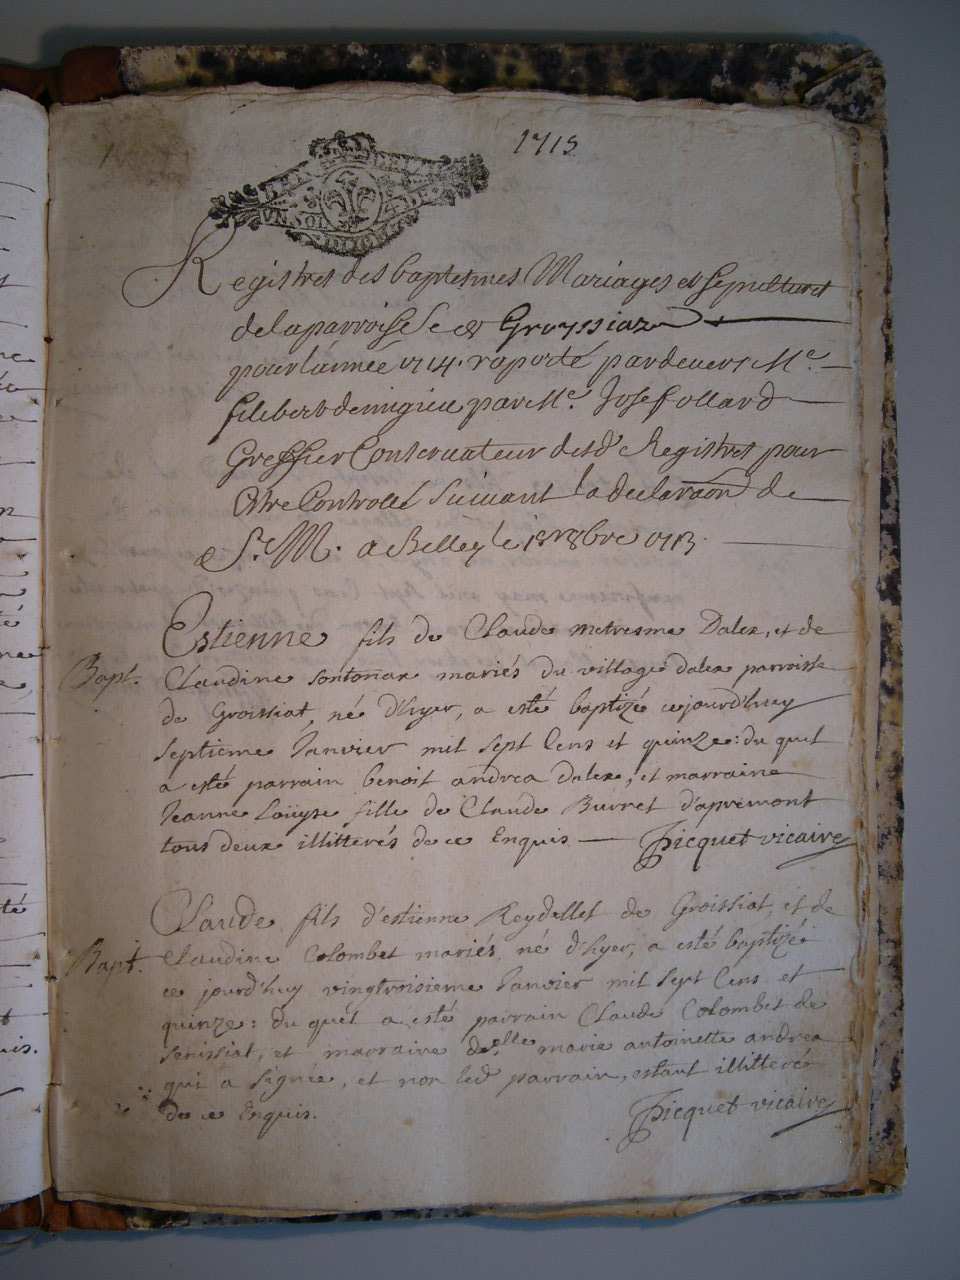 1715
VN SOL
Registres des baptesmes Mariages et sepultures
de la parroisse de Groyssiaz
pour l'année 1714. raporté pardevers Me.
filebert demigieu par Me. Josef ollard
Greffier Conservateur desd. Registres pour
Estre Controllé suivant la declaraôn de
S. M. a Belley le 8bre 1713.
Estienne fils de Claude metresme Dalex, et de
Bapt. Claudine sontonax mariés du village dalex parroisse
de Groissiat, né d'hyer, a esté baptizé ce jourd'huy
septieme Janvier mil sept Cens et quinze: du quel
a esté parrain benoit andrea dalex, et marraine
Jeanne Loüyse fille de Claude Buiret d'apremont
tous deux illitterés de ce Enquis Picquet vicaire
Claude fils d'estienne Reydellet de Groissiat, et de
Bapt. Claudine Colombet mariés, né d'hyer, a esté baptizé
ce jourd'huy vingtroisieme Janvier mil sept Cens et
quinze: du quel a esté parrain Claude Colombet de
senissiat, et marraine delle marie antoinette andrea
qui a signée, et non led parrain, estant illitteré
de ce Enquis. Picquet vicaire